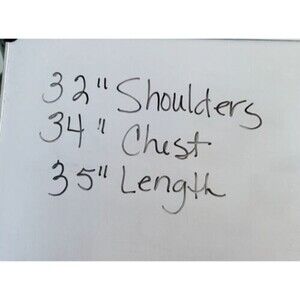 32" Shoulders
34" Chest
35" Length